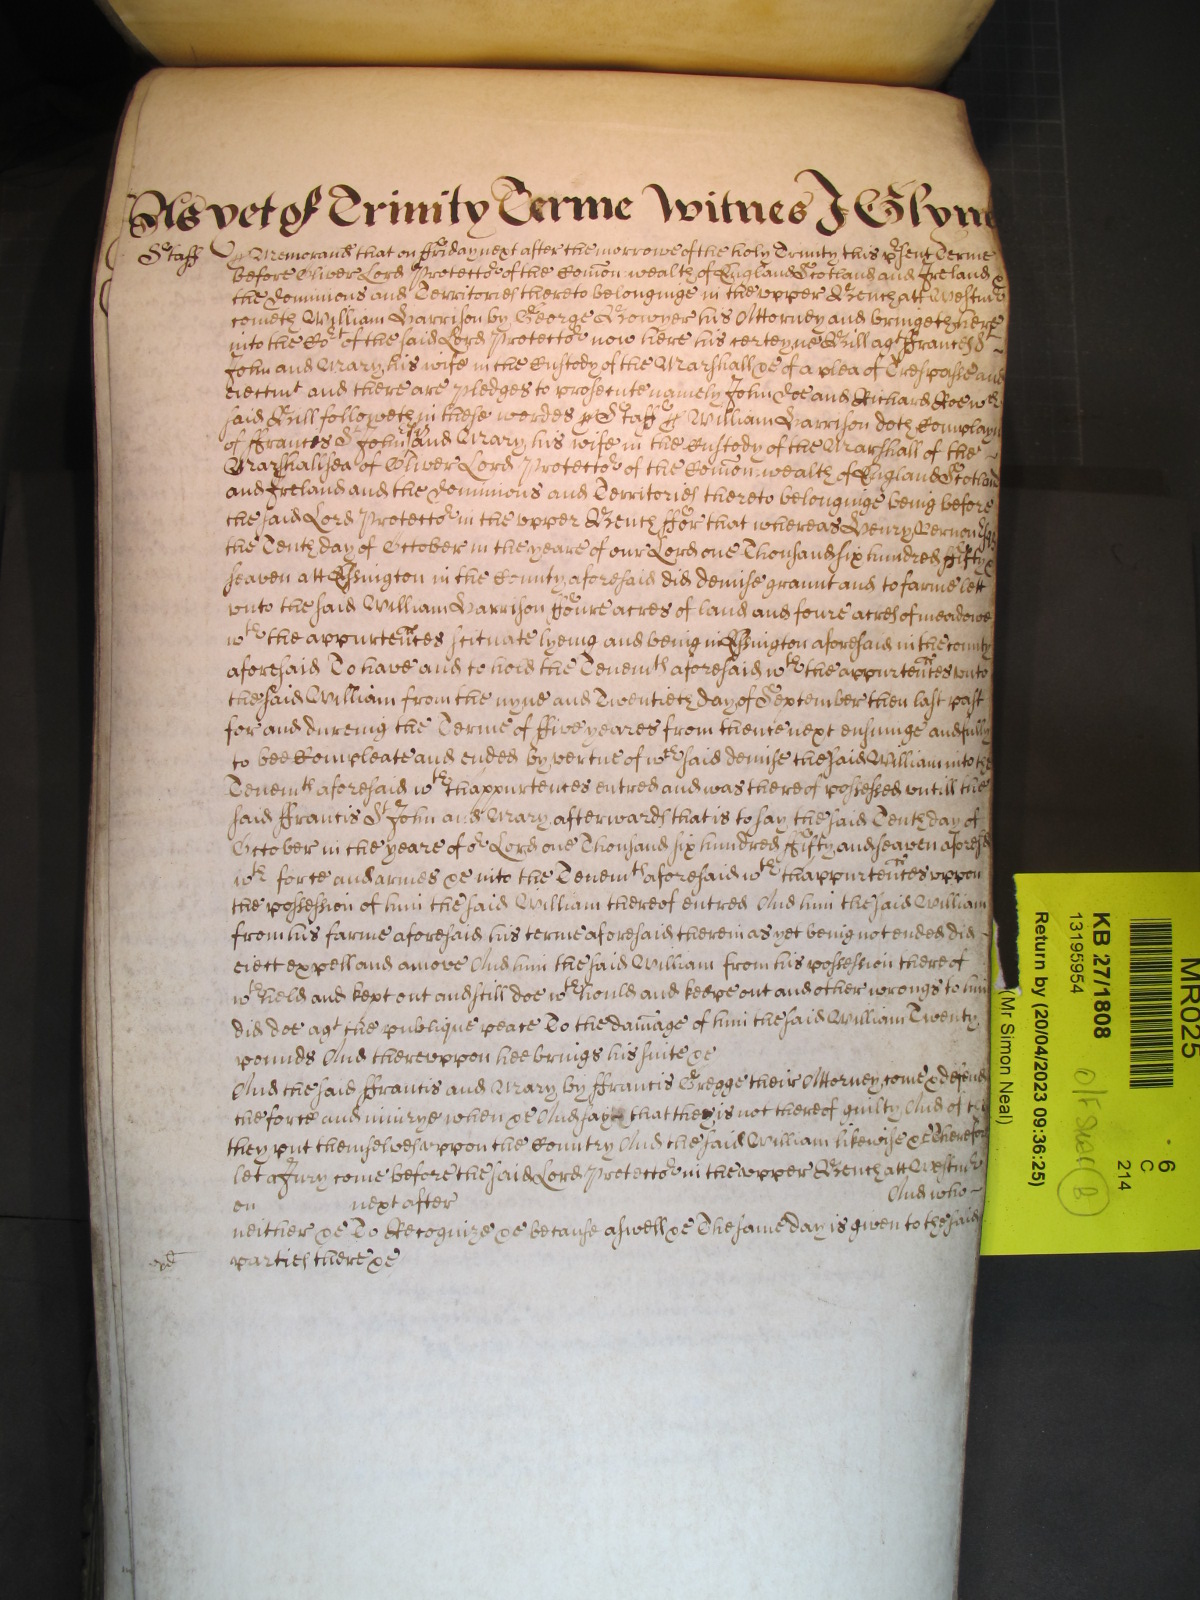 As yet of Trinity Terme Witnes J Glynn
Staff Memorand that on ffriday next after the morrowe of the holy Trinity this p'sent Terme
before Oliver Lord Protector of the Comon wealth of England Scotland and Ireland &
the dominions and Territories thereto belonginge in the upper Bench att Westmr
cometh William Harrison by George Bowyer his Attorney and bringeth here
into the Cort of the said Lord Protector now here his certeyne Bill agt ffrances St
John and Mary his wife in the Custody of the Marshall &c of a plea of Trespasse and
eiectmt and there are Pledges to prosecute namely John Doe and Richard Roe wch
said Bill followeth in these wordes Staff William Harrison doth Complayn
of ffrances St John and Mary his wife in the Custody of the Marshall of the
Marshalsea of Oliver Lord Protector of the Comon wealth of England Scotland
and Ireland and the dominions and Territories thereto belonginge being before
the said Lord Protector in the upper Bench ffor that whereas Henry Vernon Esqr
the Tenth day of October in the yeare of our Lord one Thousand six hundred ffifty &
seaven att Essington in the County aforesaid did demise graunt and to farme lett
unto the said William Harrison ffoure acres of land and foure acres of meadowe
wth the appurtences scituate lyeing and being in Essington aforesaid in the county
aforesaid To have and to hold the Tenemts aforesaid wth the appurtences unto
the said William from the nyne and Twentieth day of September then last past
for and dureing the Terme of ffive yeares from thence next ensuinge and fully
to bee Compleate and ended by vertue of wch said demise the said William into the
Tenemts aforesaid wth thappurtences entred and was thereof possessed untill the
said ffrancis St John and Mary afterwards that is to say the said Tenth day of
October in the yeare of or Lord one Thousand six hundred ffifty and seaven aforesd
wth force and armes &c into the Tenemts aforesaid wth thappurtences uppon
the possession of him the said William thereof entred And him the said William
from his farme aforesaid his terme aforesaid therein as yet being not ended did
eiect expell and amove And him the said William from his possession thereof
wthheld and kept out and still doe wthhould and keepe out and other wrongs to him
did doe agt the publique peace To the damage of him the said William Twenty
pounds And thereuppon hee brings his suite &c
And the said ffrancis and Mary by ffrancis Gregge their Attorney come & defend
the force and iniurye when &c And say that they is not thereof guilty And of this
they put themselves uppon the Country And the said William likewise &c Therefore
let a Jury come before the said Lord Protector in the upper Bench att Westmr
on next after And who
neither &c To Recognize &c because aswell &c The same day is given to the said
parties there &c
MR025
6
C
214
KB 27/1808
13195954
Return by (20/04/2023 09:36:25)
(Mr Simon Neal)
B